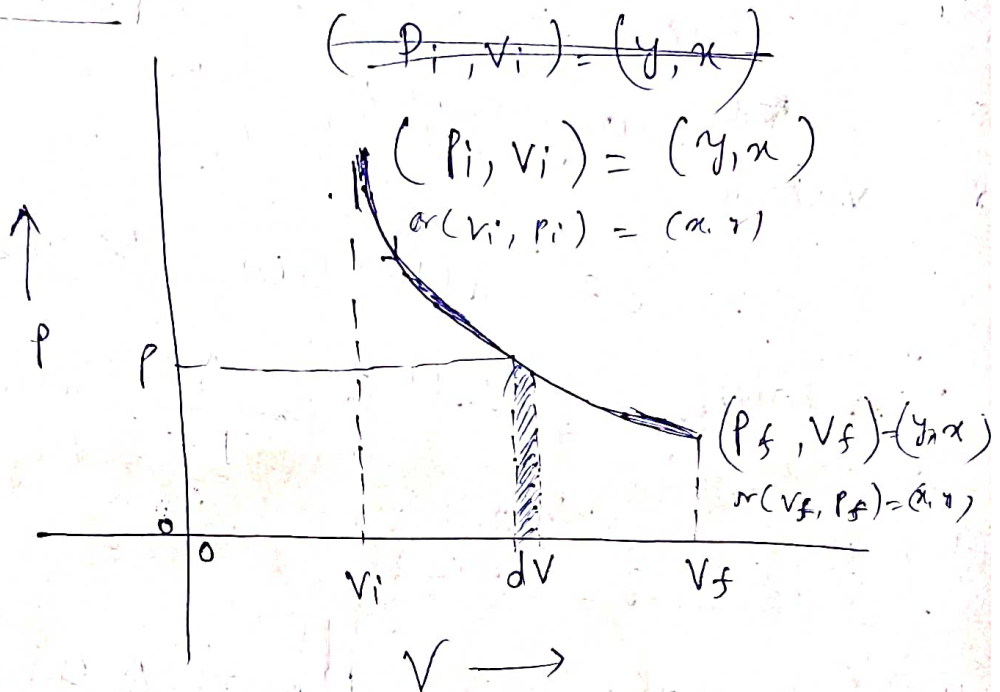 (Pi, Vi) = (y, x)
(Pi, Vi) = (y, x)
or (Vi, Pi) = (x, y)
P
P
(Pf, Vf) = (y, x)
or (Vf, Pf) = (x, y)
0
0
Vi
dV
Vf
V